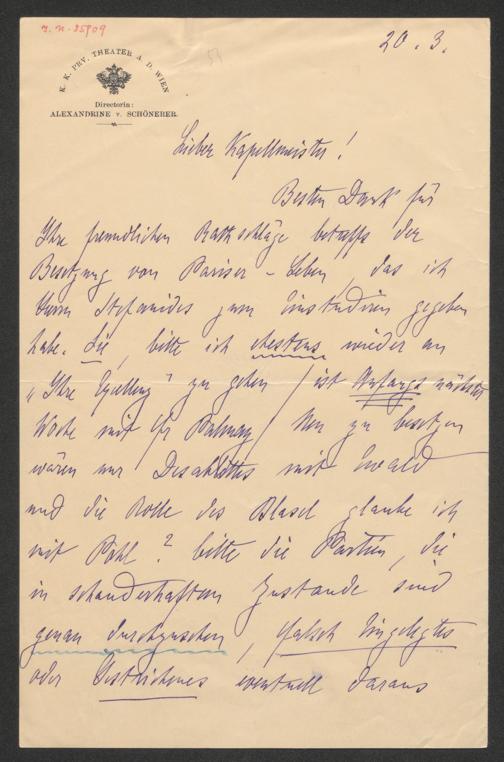 J. N. 85909
K. K. PRV. THEATER A. D. WIEN
Directorin:
ALEXANDRINE v. SCHÖNERER.
20. 3.
Lieber Kapellmeister!
Besten Dank für
Ihre freundlichen Rathschläge betreffs der
Besetzung von Pariser-Leben, das ich
Herrn Stefanides zum Einstudiren gegeben
habe. Sie, bitte ich ehestens wieder an
"Ihre Excellenz" zu gehen / ist Anfangs nächster
Woche mit Fr Palmay / Neu zu besetzen
wären nur Desablettes mit Ewald
und die Rolle des Blasel glaube ich
mit Pohl? bitte die Partien, die
in schauderhaftem Zustande sind
genau durchzusehen, falsch Eingelegtes
oder Gestrichenes eventuell daraus